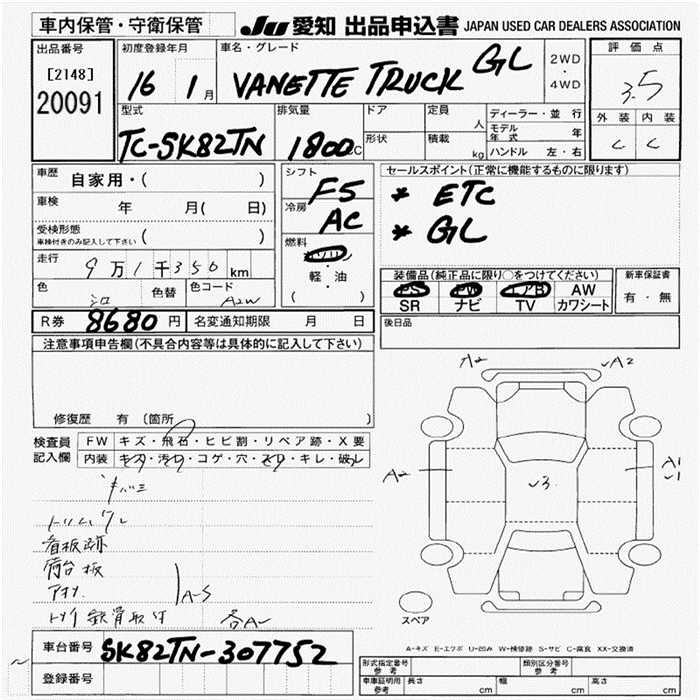 車内保管・守衛保管
JU 愛知 出品申込書 JAPAN USED CAR DEALERS ASSOCIATION
出品番号
[2148]
20091
初度登録年月
16 1月
車名・グレード
VANETTE TRUCK GL
2WD
・
4WD
評価点
3.5
外装 内装
C C
型式
TC-SK82TN
排気量
1800cc
ドア
形状
定員 人
積載 kg
ディーラー・並行
モデル年式 年
ハンドル 左・右
車歴 自家用・( )
車検 年 月( 日)
受検形態
車検付きのみ記入して下さい ( )
走行
9万1千350km
色 色替 色コード
A2W
シフト
F5
冷房
AC
燃料
ガソリン
・
軽・油
( )
セールスポイント(正常に機能するものに限ります)
* ETC
* GL
装備品(純正品に限り○をつけてください)
PS PW エアB AW
SR ナビ TV カワシート
新車保証書
有・無
R券 8680円 名変通知期限 月 日
後日品
注意事項申告欄(不具合内容等は具体的に記入して下さい)
修復歴 有 (箇所 )
検査員記入欄
FW キズ・飛石・ヒビ割・リペア跡・X要
内装 キズ・汚れ・コゲ・穴・スレ・キレ・破れ
看板跡
荷台板
A-S
鉄骨取付
各A-
A2 A2
A2 A1
3.
スペア
A-キズ E-エクボ U-凹み W-補修跡 S-サビ C-腐食 XX-交換済
車台番号 SK82TN-307752
登録番号
形式指定番号
参考
類別区分番号
参考
車庫証明用
参考
長さ cm 幅 cm 高さ cm